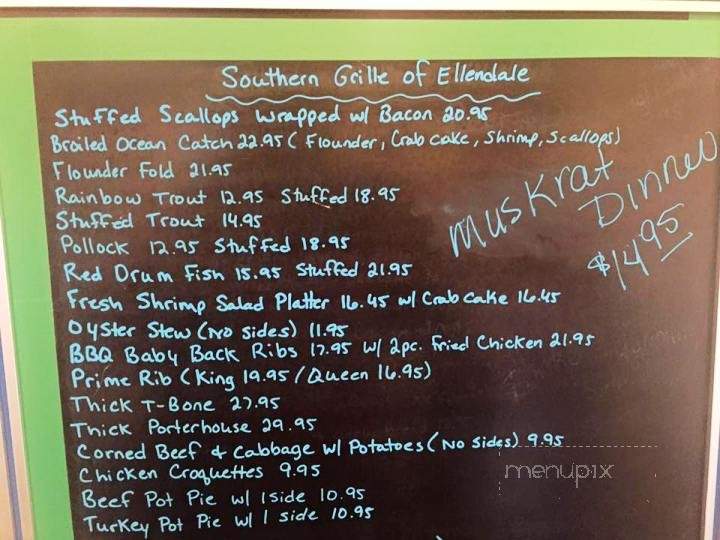 Southern Grille of Ellendale
Stuffed Scallops wrapped w/ Bacon 20.95
Broiled Ocean Catch 22.95 (Flounder, Crab cake, Shrimp, Scallops)
Flounder Fold 21.95
Rainbow Trout 12.95 Stuffed 18.95
Stuffed Trout 14.95
Pollock 12.95 Stuffed 18.95
Red Drum Fish 15.95 Stuffed 21.95
Fresh Shrimp Salad Platter 16.45 w/ Crab cake 16.45
Oyster Stew (No sides) 11.95
BBQ Baby Back Ribs 17.95 w/ 2pc. Fried Chicken 21.95
Prime Rib (King 19.95 / Queen 16.95)
Thick T-Bone 27.95
Thick Porterhouse 29.95
Corned Beef & Cabbage w/ Potatoes (No sides) 9.95
Chicken Croquettes 9.95
Beef Pot Pie w/ 1 side 10.95
Turkey Pot Pie w/ 1 side 10.95
Muskrat
Dinner
$14.95
menupix